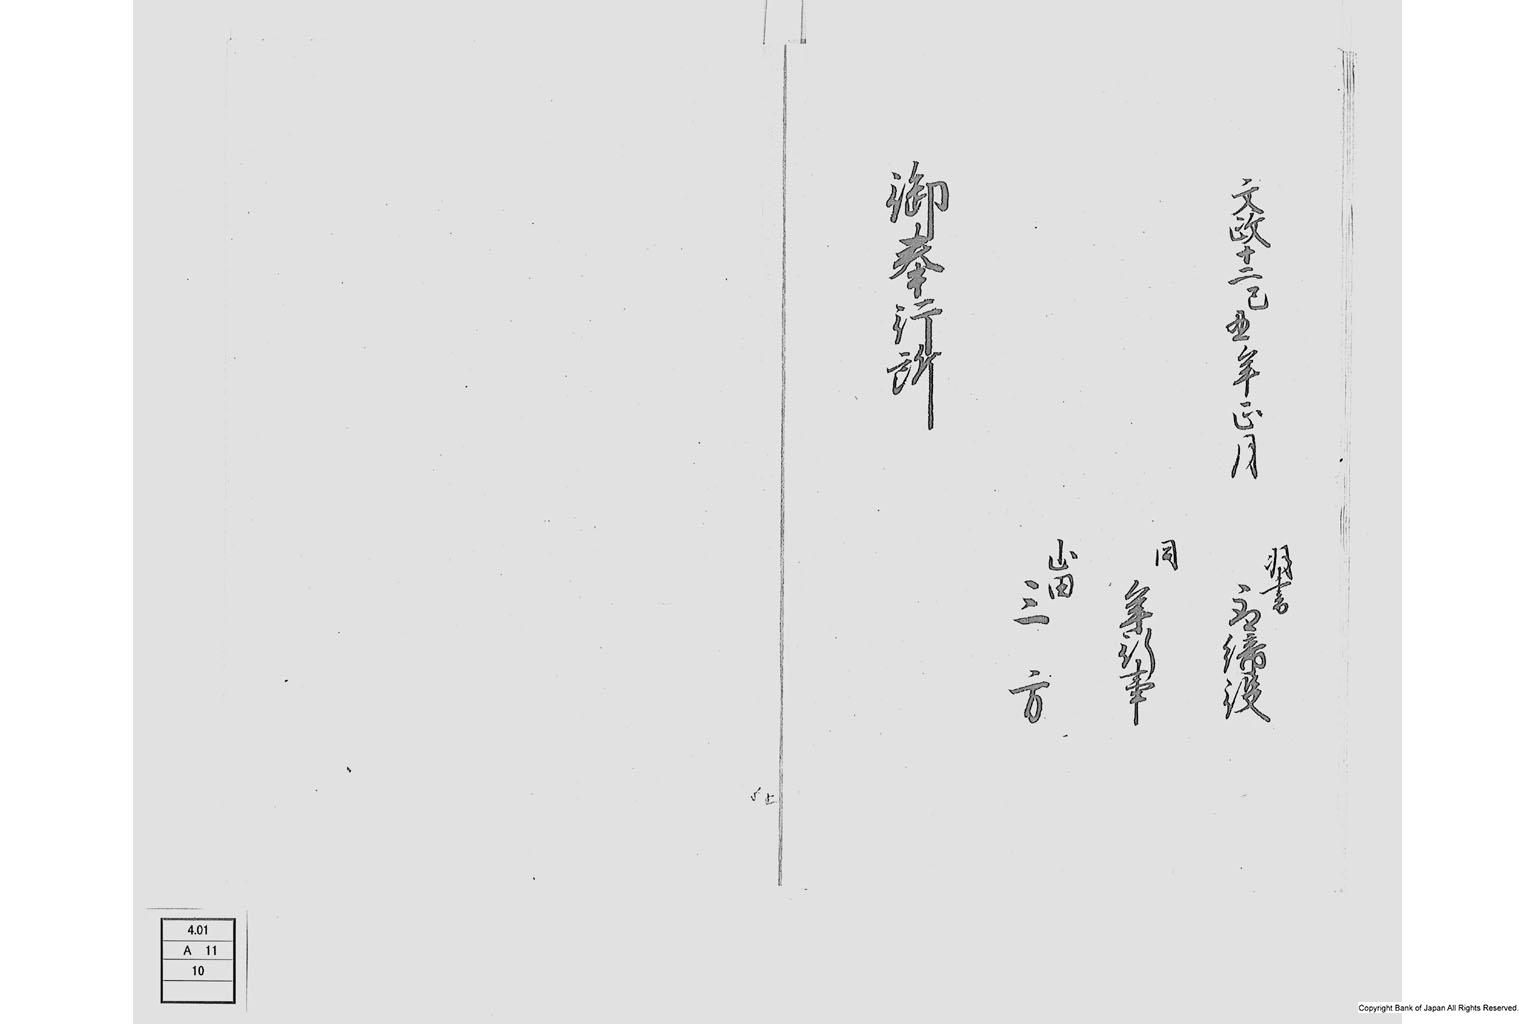 文政十二己丑年正月
羽書
取締役
同
年行事
山田
三方
御奉行所
4.01
A 11
10
Copyright Bank of Japan All Rights Reserved.